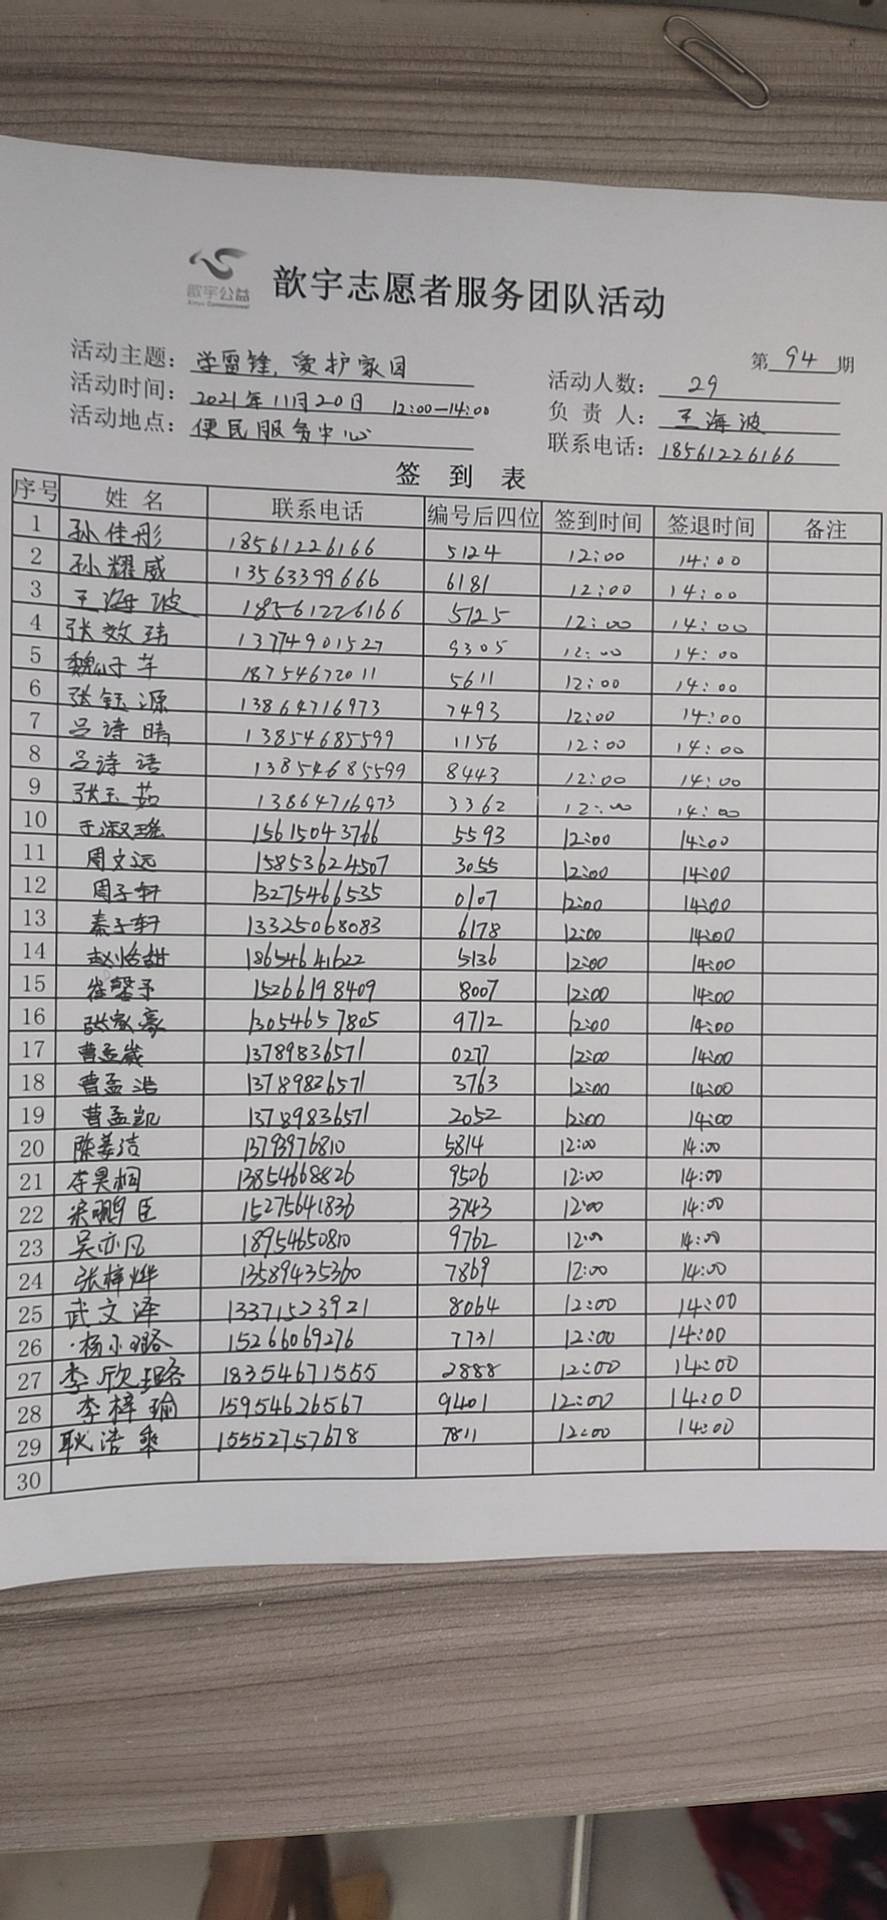 歆宇公益
歆宇志愿者服务团队活动
第 94 期
活动主题：学雷锋，爱护家园
活动人数：29
活动时间：2021年11月20日 12:00—14:00
负责人：王海波
活动地点：便民服务中心
联系电话：18561226166
签到表
序号 姓名 联系电话 编号后四位 签到时间 签退时间 备注
1 孙佳彤 18561226166 5124 12:00 14:00
2 孙耀威 13563399666 6181 12:00 14:00
3 王海波 18561226166 5125 12:00 14:00
4 张效玮 13774901527 9305 12:00 14:00
5 魏子芊 18754672011 5611 12:00 14:00
6 张钰源 13864716973 7493 12:00 14:00
7 吕诗晴 13854685599 1156 12:00 14:00
8 吕诗语 13854685599 8443 12:00 14:00
9 张玉茹 13864716973 3362 12:00 14:00
10 于淑瑶 15615043766 5593 12:00 14:00
11 周文远 15853624507 3055 12:00 14:00
12 周子轩 13275466535 0107 12:00 14:00
13 秦子轩 13325068083 6178 12:00 14:00
14 赵恰甜 18654641622 5136 12:00 14:00
15 崔馨予 15266198409 8007 12:00 14:00
16 张家豪 13054657805 9712 12:00 14:00
17 曹孟崴 13789836571 0277 12:00 14:00
18 曹孟浩 13789836571 3763 12:00 14:00
19 曹孟凯 13789836571 2052 12:00 14:00
20 陈姜洁 13793976810 5814 12:00 14:00
21 李昊桐 13854668826 9506 12:00 14:00
22 宋鹏臣 15275641836 3743 12:00 14:00
23 吴亦凡 18954650810 9762 12:00 14:00
24 张梓烨 13589435360 7869 12:00 14:00
25 武文泽 13371523921 8064 12:00 14:00
26 杨小璐 15266069276 7731 12:00 14:00
27 李欣璐 18354671555 2888 12:00 14:00
28 李梓瑜 15954626567 9401 12:00 14:00
29 耿浩乘 15552757678 7811 12:00 14:00
30